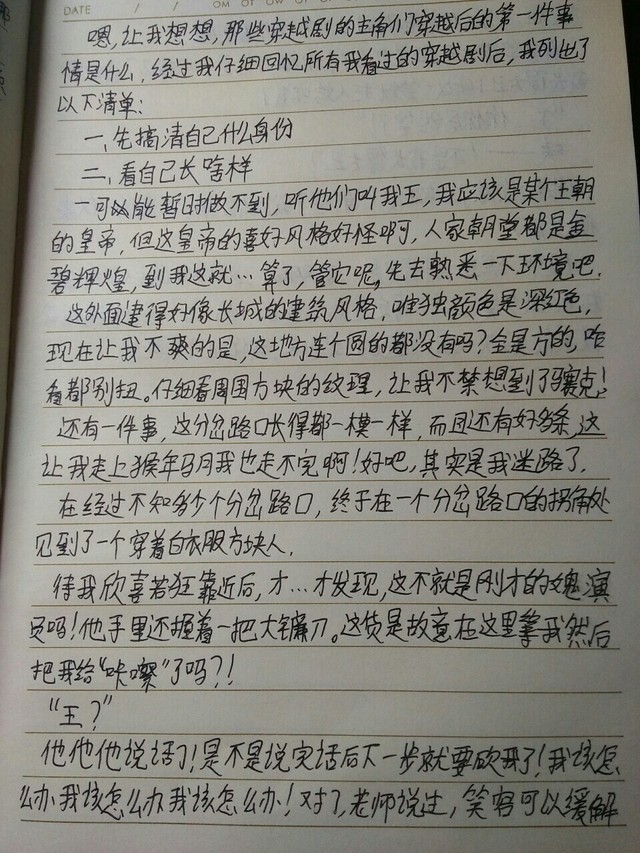 DATE / / OM OT OW OT OF OS
嗯,让我想想,那些穿越剧的主角们穿越后的第一件事
情是什么,经过我仔细回忆所有我看过的穿越剧后,我列出了
以下清单:
一、先搞清自己什么身份
二、看自己长啥样
一可以能暂时做不到,听他们叫我王,我应该是某个王朝
的皇帝,但这皇帝的喜好风格好怪啊,人家朝堂都是金
碧辉煌,到我这就…算了,管它呢,先去熟悉一下环境吧.
这外面建得好像长城的建筑风格,唯独颜色是深红色,
现在让我不爽的是,这地方连个圆的都没有吗?全是方的,咋
看都别扭。仔细看周围方块的纹理,让我不禁想到了马赛克!
还有一件事,这分岔路口长得都一模一样,而且还有好多条,这
让我走上猴年马月我也走不完啊!好吧,其实是我迷路了.
在经过不知多少个分岔路口,终于在一个分岔路口的拐角处
见到了一个穿着白衣服方块人.
待我欣喜若狂靠近后,才…才发现,这不就是刚才的 演
员吗!他手里还握着一把大镰刀。这货是故意在这里等我然后
把我给“咔嚓”了吗?!
“王?”
他他他说话了!是不是说完话后下一步就要砍我了!我该怎
么办我该怎么办我该怎么办!对了,老师说过,笑容可以缓解